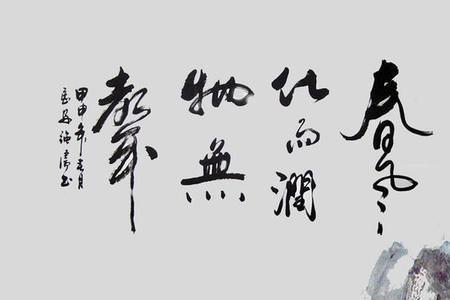 春风
化雨潤
物無
聲
甲申年春月
书